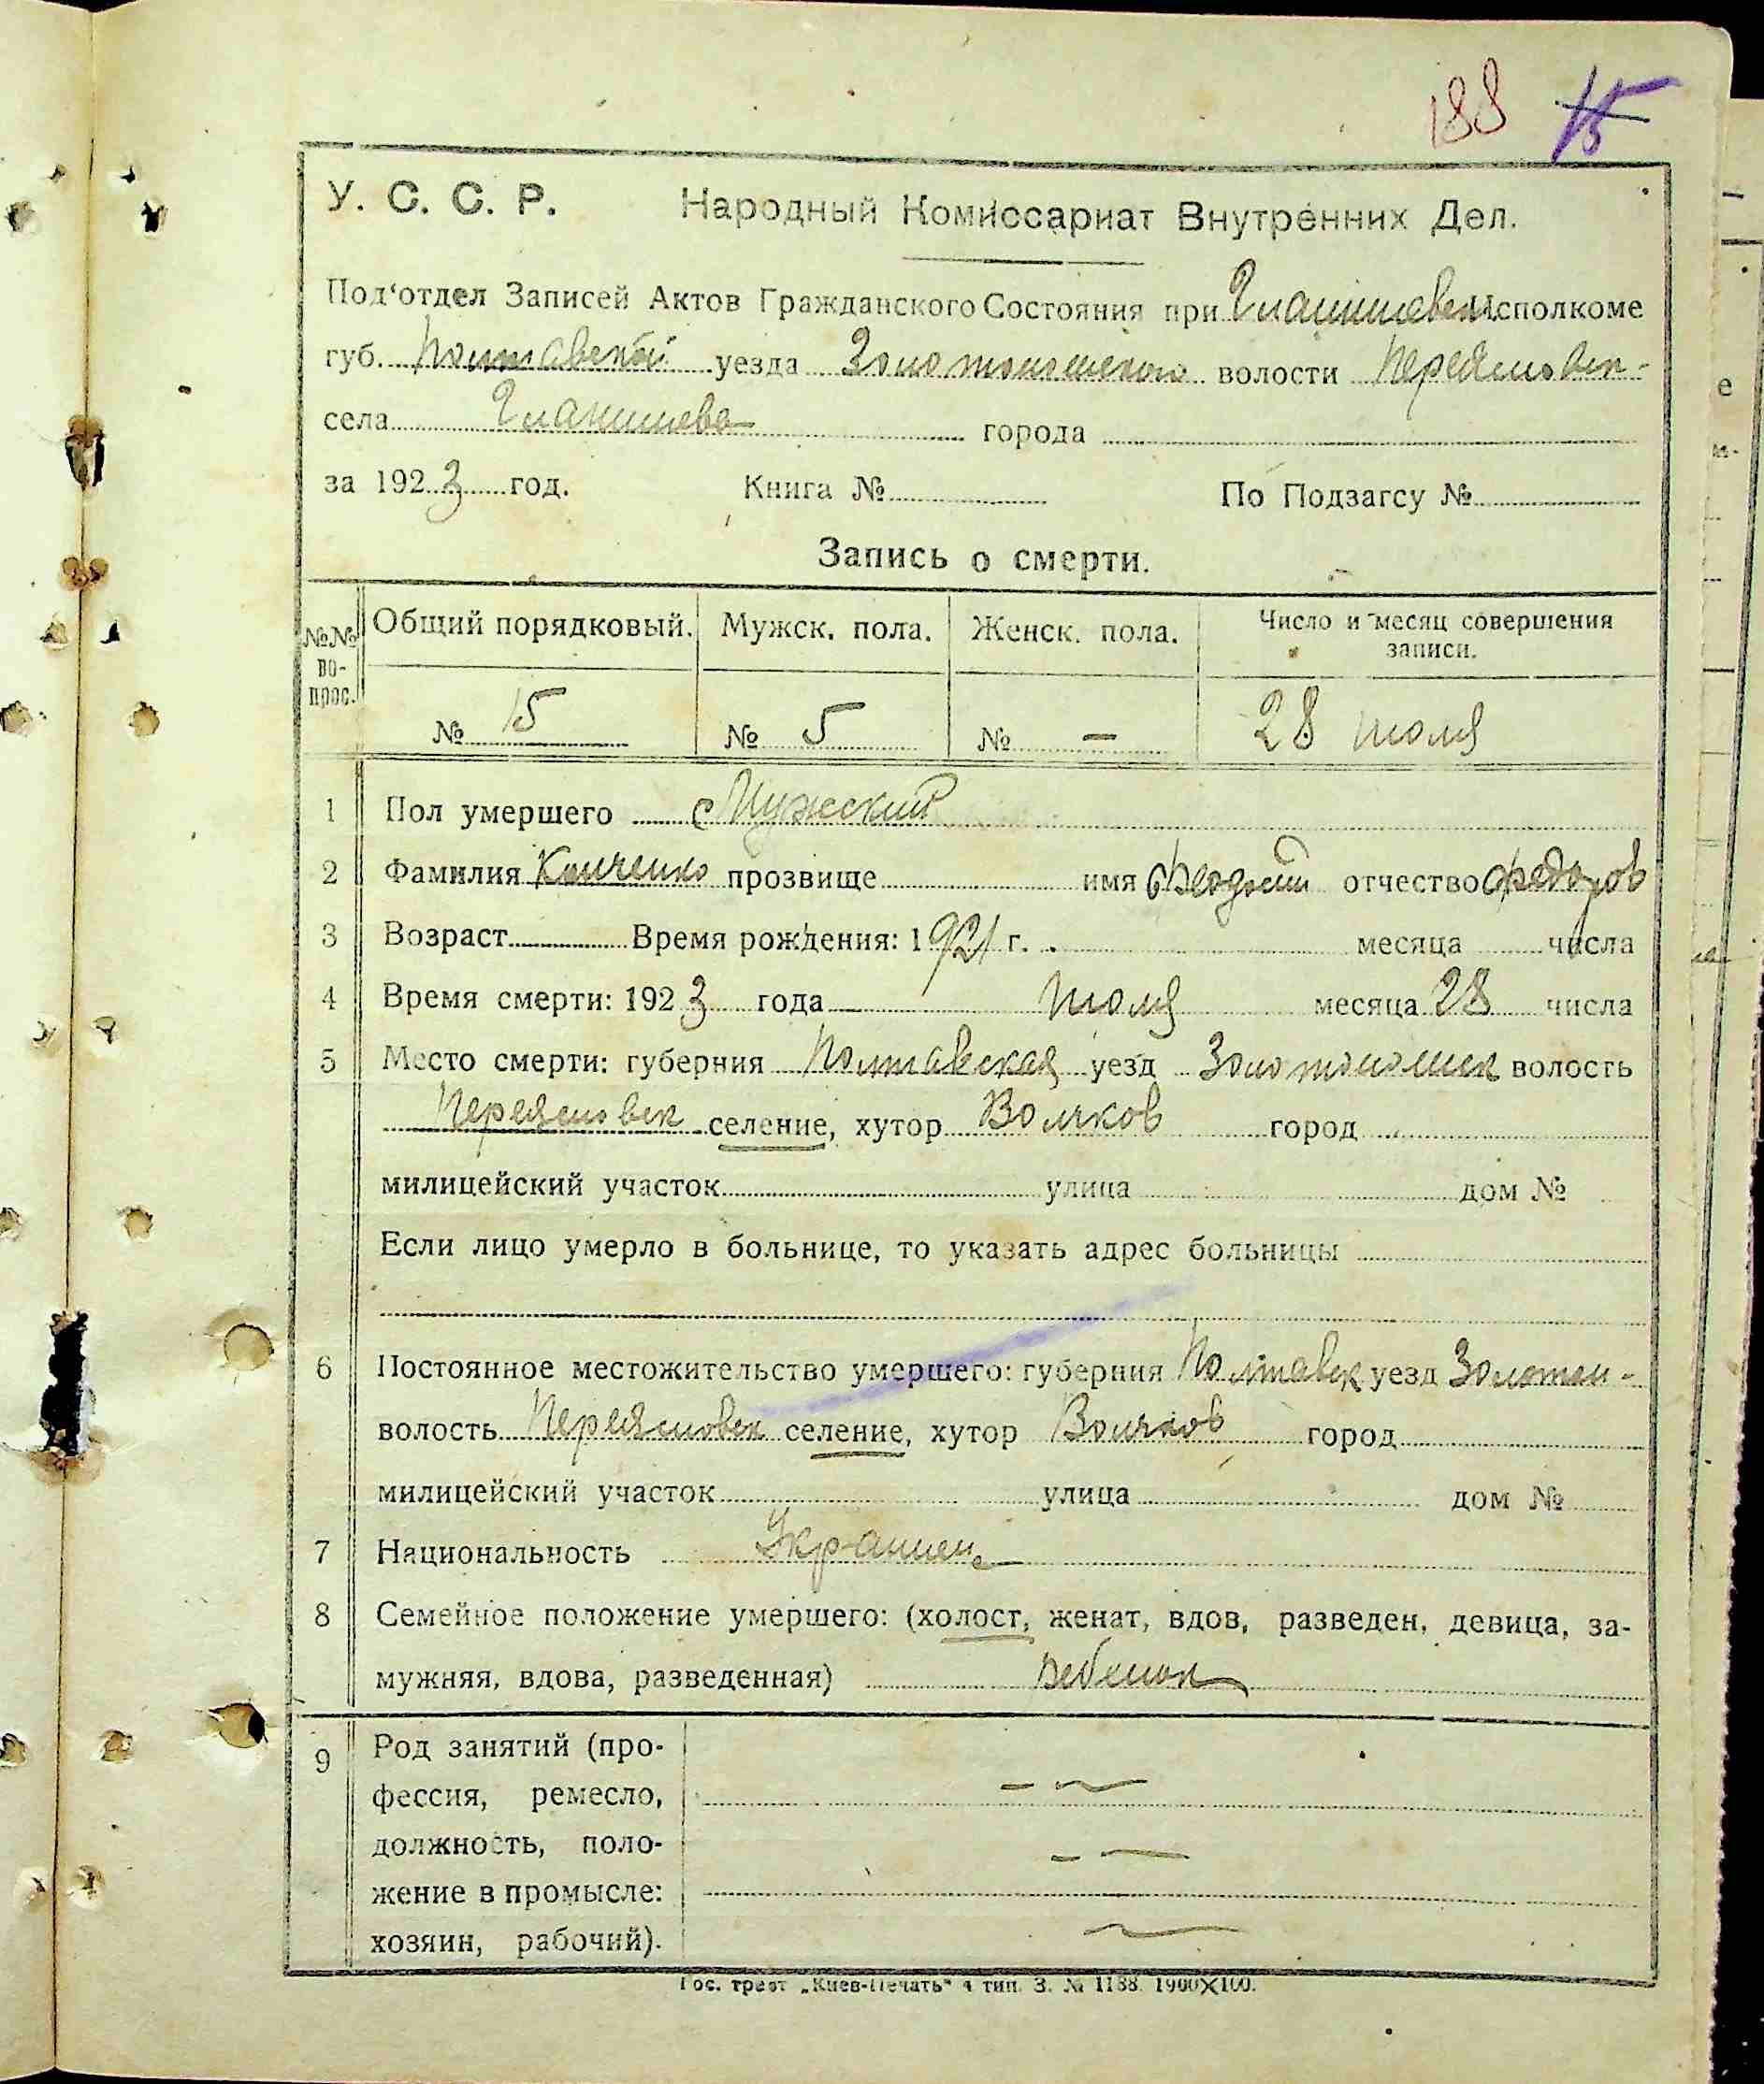 188 15
У. С. С. Р. Народный Комиссариат Внутренних Дел.
Под'отдел Записей Актов Гражданского Состояния при Гланишевск. исполкоме
губ. Полтавской уезда Золотоношского волости Переяславск-
села Гланишева города
за 1923 год. Книга № По Подзагсу №
Запись о смерти.
№№ во-прос. Общий порядковый. Мужск. пола. Женск. пола. Число и месяц совершения записи.
№ 15 № 5 № — 28 июля
1 Пол умершего Мужеский
2 Фамилия прозвище имя Феодосий отчество Федоров
3 Возраст Время рождения: 1921 г. месяца числа
4 Время смерти: 1923 года июля месяца 28 числа
5 Место смерти: губерния Полтавская уезд Золотоношск волость
Переяславск селение, хутор Волчков город
милицейский участок улица дом №
Если лицо умерло в больнице, то указать адрес больницы
6 Постоянное местожительство умершего: губерния Полтавск уезд Золотон-
волость Переяславск селение, хутор Волчков город
милицейский участок улица дом №
7 Национальность Украинец
8 Семейное положение умершего: (холост, женат, вдов, разведен, девица, за-
мужняя, вдова, разведенная) Ребенок
9 Род занятий (про-
фессия, ремесло,
должность, поло-
жение в промысле:
хозяин, рабочий).
Гос. трест „Киев-Печать" 4 тип. З. № 1188. 1900×100.